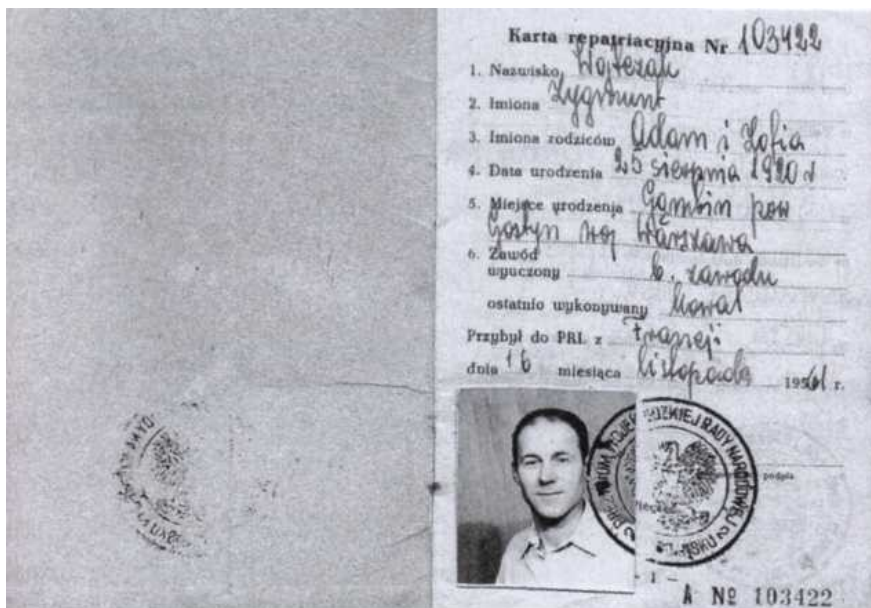 Karta repatriacyjna Nr 103422
1. Nazwisko Wojtczak
2. Imiona Zygmunt
3. Imiona rodziców Adam i Zofia
4. Data urodzenia 25 sierpnia 1920 r
5. Miejsce urodzenia Gąmbin pow
Gostyn woj Warszawa
6. Zawód
wyuczony b. zawodu
ostatnio wykonywany kowal
Przybył do PRL z Francji
dnia 16 miesiąca listopada 1961 r.
RADY NARODOWEJ
podpis
- 1 -
A Nº 103422